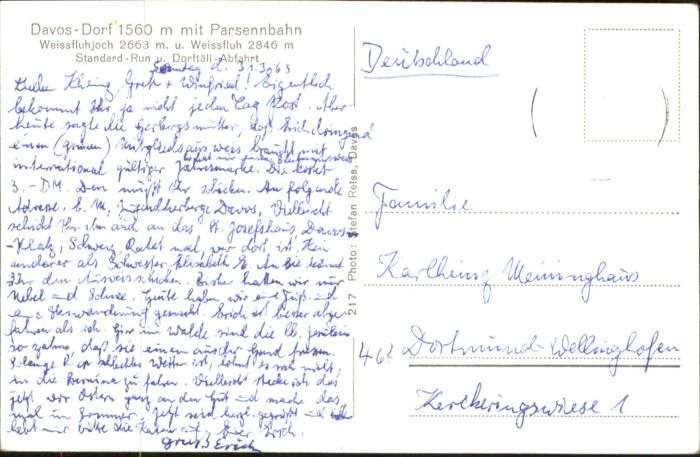 Davos-Dorf 1560 m mit Parsennbahn
Weissfluhjoch 2663 m. u. Weissfluh 2846 m
Standard-Run u. Dorftäli-Abfahrt
Sonntag d. 31.3.63
Liebe Gret + Winfried! Eigentlich
bekommt Ihr ja nicht jeden Tag Post. Aber
heute sagte die Herbergsmutter, daß
einen (grünen) Mitgliedsausweis braucht mit
international gültiger Jahresmarke. Die kostet
3.- DM. Den müßt Ihr schicken. An folgende
Adresse. Jugendherberge Davos, Vielleicht
schickt Ihr ihn auch an das St. Josefshaus, Davos
-Platz, Schweiz. Ratet mal, wer dort ist. Kein
anderer als Schwester Elisabeth An sie könnt
Ihr den Ausweis schicken. Bisher hatten wir nur
Nebel und Schnee. Heute haben wir eine
gemacht. Erich ist besser abge-
fahren als ich. Hier im Walde sind die
so zahm, daß sie einen aus der Hand fressen.
Solange schlechtes Wetter ist, lohnt es sich nicht,
in die Bernina zu fahren. Vielleicht das
jetzt vor Ostern ganz an den und mache das
mal im Sommer. Jetzt seid herzl. gegrüßt und
bitte die Karte auf. Euer
Gruß Erich
217 Photo: Stefan Reiss, Davos
Deutschland
Familie
Karlheinz Meininghaus
462 Dortmund-Wellinghofen
Kerlkeringswiese 1